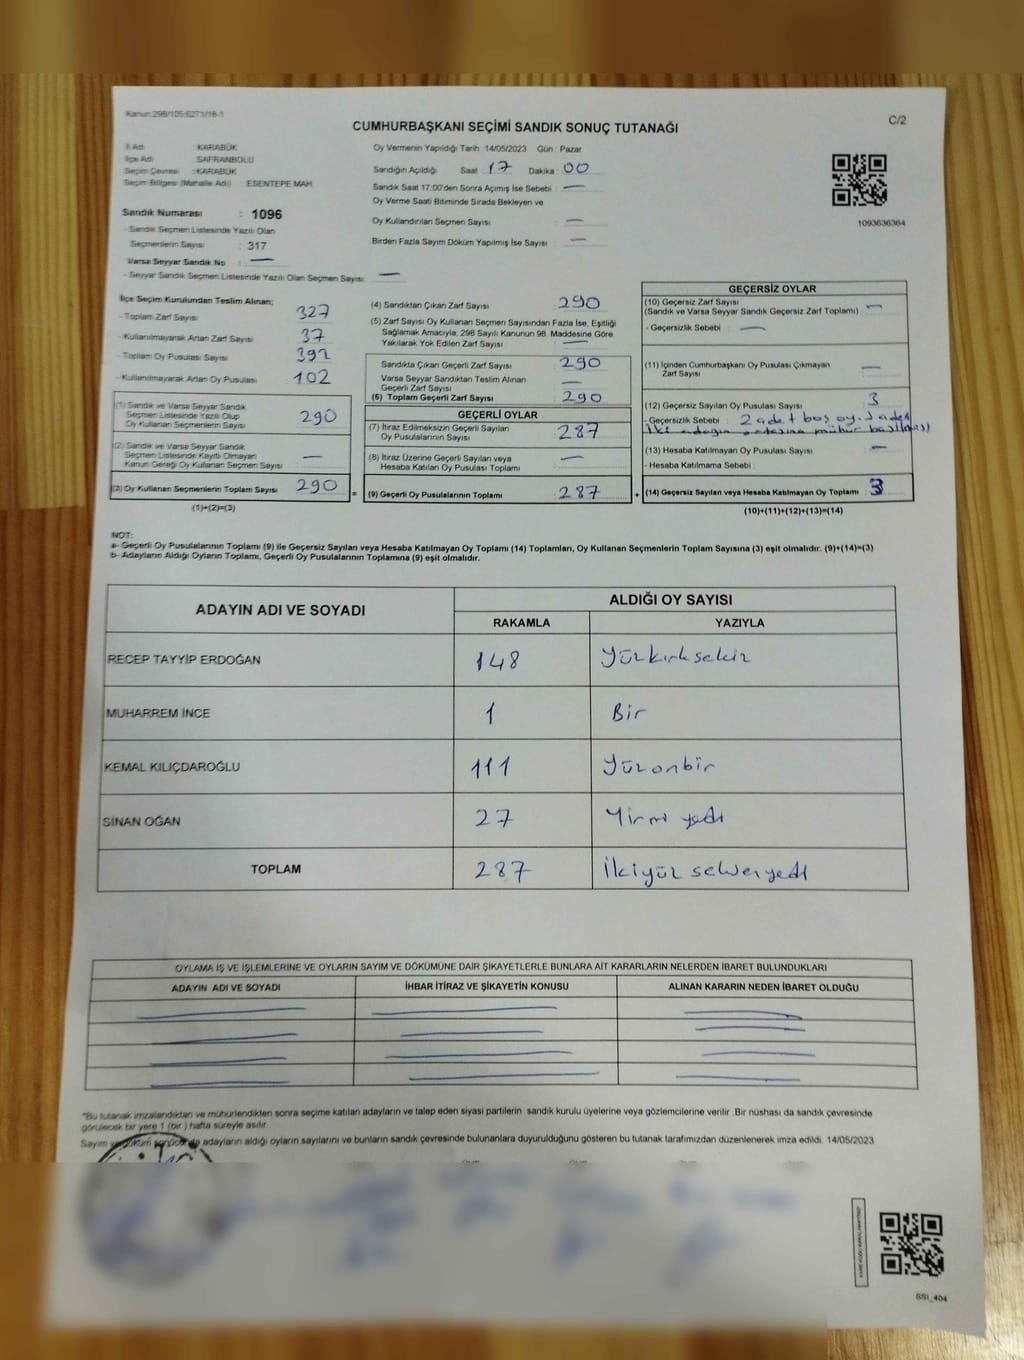 Kanun:298/105;6271/18-1
C/2
CUMHURBAŞKANI SEÇİMİ SANDIK SONUÇ TUTANAĞI
İl Adı : KARABÜK
İlçe Adı : SAFRANBOLU
Seçim Çevresi : KARABÜK
Seçim Bölgesi (Mahalle Adı) : ESENTEPE MAH.
Sandık Numarası : 1096
- Sandık Seçmen Listesinde Yazılı Olan
Seçmenlerin Sayısı : 317
Varsa Seyyar Sandık No : —
- Seyyar Sandık Seçmen Listesinde Yazılı Olan Seçmen Sayısı : —
Oy Vermenin Yapıldığı Tarih :14/05/2023 Gün : Pazar
Sandığın Açıldığı Saat : 17 Dakika : 00
Sandık Saat 17:00'den Sonra Açılmış İse Sebebi : —
Oy Verme Saati Bitiminde Sırada Bekleyen ve
Oy Kullandırılan Seçmen Sayısı : —
Birden Fazla Sayım Döküm Yapılmış İse Sayısı : —
1093636364
İlçe Seçim Kurulundan Teslim Alınan;
- Toplam Zarf Sayısı : 327
- Kullanılmayarak Artan Zarf Sayısı : 37
- Toplam Oy Pusulası Sayısı : 392
- Kullanılmayarak Artan Oy Pusulası : 102
(1) Sandık ve Varsa Seyyar Sandık
Seçmen Listesinde Yazılı Olup
Oy Kullanan Seçmenlerin Sayısı : 290
(2) Sandık ve Varsa Seyyar Sandık
Seçmen Listesinde Kayıtlı Olmayan
Kanun Gereği Oy Kullanan Seçmen Sayısı : —
(3) Oy Kullanan Seçmenlerin Toplam Sayısı : 290
(1)+(2)=(3)
(4) Sandıktan Çıkan Zarf Sayısı : 290
(5) Zarf Sayısı Oy Kullanan Seçmen Sayısından Fazla İse, Eşitliği
Sağlamak Amacıyla, 298 Sayılı Kanunun 98. Maddesine Göre
Yakılarak Yok Edilen Zarf Sayısı : —
Sandıkta Çıkan Geçerli Zarf Sayısı : 290
Varsa Seyyar Sandıktan Teslim Alınan
Geçerli Zarf Sayısı : —
(6) Toplam Geçerli Zarf Sayısı : 290
GEÇERLİ OYLAR
(7) İtiraz Edilmeksizin Geçerli Sayılan
Oy Pusulalarının Sayısı : 287
(8) İtiraz Üzerine Geçerli Sayılan veya
Hesaba Katılan Oy Pusulası Toplamı : —
= (9) Geçerli Oy Pusulalarının Toplamı : 287
GEÇERSİZ OYLAR
(10) Geçersiz Zarf Sayısı
(Sandık ve Varsa Seyyar Sandık Geçersiz Zarf Toplamı) : —
- Geçersizlik Sebebi : —
(11) İçinden Cumhurbaşkanı Oy Pusulası Çıkmayan
Zarf Sayısı : —
(12) Geçersiz Sayılan Oy Pusulası Sayısı : 3
- Geçersizlik Sebebi : 2 adet boş oy. 1 adet
iki adayın mühür
(13) Hesaba Katılmayan Oy Pusulası Sayısı : —
- Hesaba Katılmama Sebebi :
+ (14) Geçersiz Sayılan veya Hesaba Katılmayan Oy Toplamı : 3
(10)+(11)+(12)+(13)=(14)
NOT:
a- Geçerli Oy Pusulalarının Toplamı (9) ile Geçersiz Sayılan veya Hesaba Katılmayan Oy Toplamı (14) Toplamları, Oy Kullanan Seçmenlerin Toplam Sayısına (3) eşit olmalıdır. (9)+(14)=(3)
b- Adayların Aldığı Oyların Toplamı, Geçerli Oy Pusulalarının Toplamına (9) eşit olmalıdır.
ADAYIN ADI VE SOYADI
ALDIĞI OY SAYISI
RAKAMLA YAZIYLA
RECEP TAYYİP ERDOĞAN 148 Yüzkırksekiz
MUHARREM İNCE 1 Bir
KEMAL KILIÇDAROĞLU 111 Yüzonbir
SİNAN OĞAN 27 Yirmi yedi
TOPLAM 287 İkiyüz seksenyedi
OYLAMA İŞ VE İŞLEMLERİNE VE OYLARIN SAYIM VE DÖKÜMÜNE DAİR ŞİKAYETLERLE BUNLARA AİT KARARLARIN NELERDEN İBARET BULUNDUKLARI
ADAYIN ADI VE SOYADI İHBAR İTİRAZ VE ŞİKAYETİN KONUSU ALINAN KARARIN NEDEN İBARET OLDUĞU
*Bu tutanak imzalandıktan ve mühürlendikten sonra seçime katılan adayların ve talep eden siyasi partilerin sandık kurulu üyelerine veya gözlemcilerine verilir .Bir nüshası da sandık çevresinde
görülecek bir yere 1 (bir ) hafta süreyle asılır.
Sayım ve döküm sonucu da adayların aldığı oyların sayılarını ve bunların sandık çevresinde bulunanlara duyurulduğunu gösteren bu tutanak tarafımızdan düzenlenerek imza edildi. 14/05/2023
SSI_404